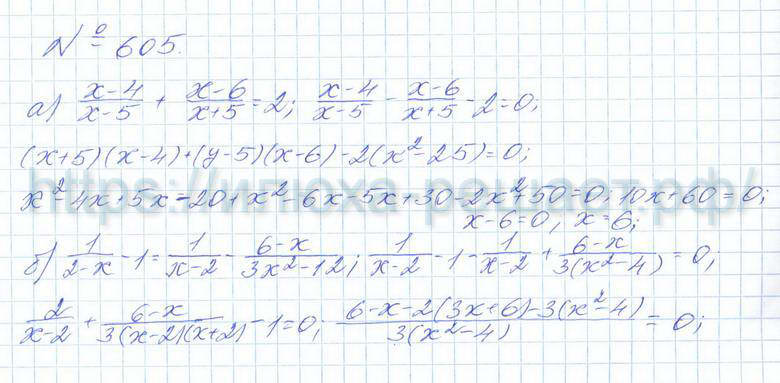 № 605.
а) (x-4)/(x-5) + (x-6)/(x+5) = 2; (x-4)/(x-5) - (x-6)/(x+5) - 2 = 0;
(x+5)(x-4)+(y-5)(x-6)-2(x²-25)=0;
x²-4x+5x-20+x²-6x-5x+30-2x²+50=0; 10x+60=0;
x-6=0, x=6;
б) 1/(2-x) - 1 = 1/(x-2) - (6-x)/(3x²-12); 1/(x-2) - 1 - 1/(x-2) + (6-x)/(3(x²-4)) = 0;
2/(x-2) + (6-x)/(3(x-2)(x+2)) - 1 = 0; (6-x-2(3x+6)-3(x²-4))/(3(x²-4)) = 0;
https://илюха-решает.рф/